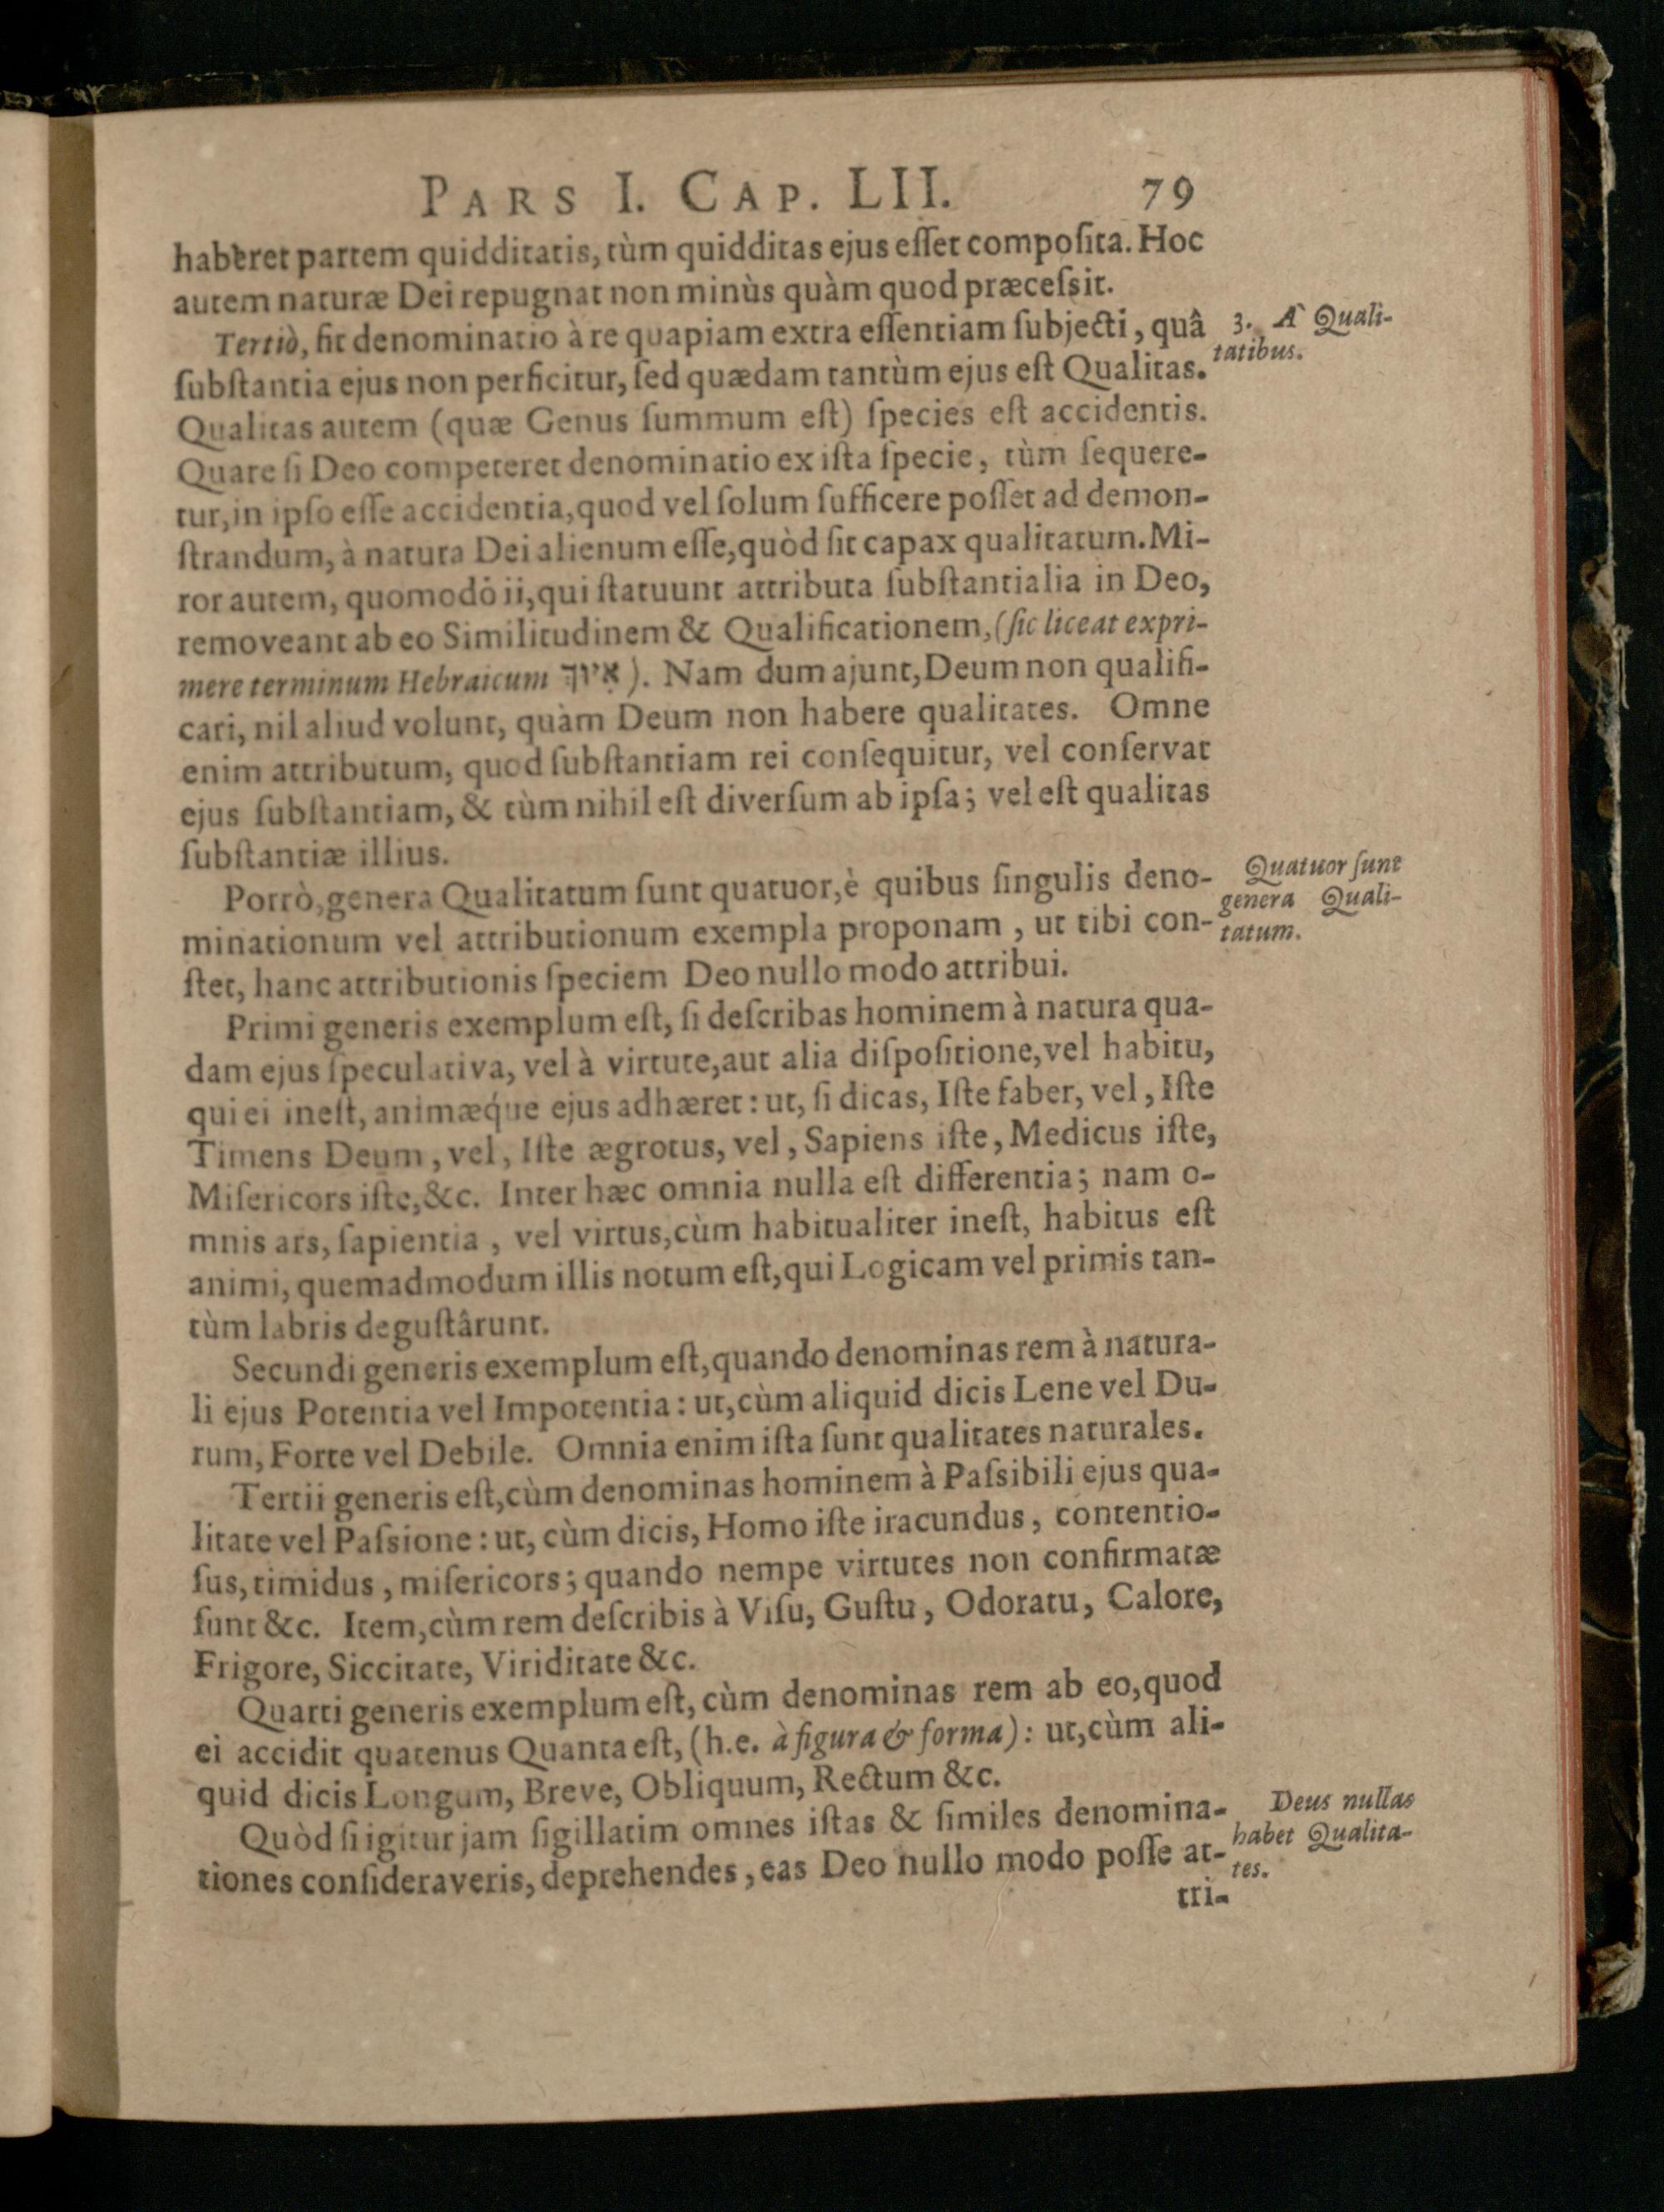 PARS I. CAP. LII. 79
haberet partem quidditatis, tùm quidditas ejus eſſet compoſita. Hoc
autem naturæ Dei repugnat non minùs quàm quod præceſsit.
Tertiò, fit denominatio à re quapiam extra eſſentiam ſubjecti, quâ
ſubſtantia ejus non perficitur, ſed quædam tantùm ejus eſt Qualitas.
3. A Quali-
tatibus.
Qualitas autem (quæ Genus ſummum eſt) ſpecies eſt accidentis.
Quare ſi Deo competeret denominatio ex iſta ſpecie, tùm ſequere-
tur, in ipſo eſſe accidentia, quod vel ſolum ſufficere poſſet ad demon-
ſtrandum, à natura Dei alienum eſſe, quòd ſit capax qualitatum. Mi-
ror autem, quomodò ii, qui ſtatuunt attributa ſubſtantialia in Deo,
removeant ab eo Similitudinem & Qualificationem, (ſic liceat expri-
mere terminum Hebraicum איוך). Nam dum ajunt, Deum non qualifi-
cari, nil aliud volunt, quàm Deum non habere qualitates. Omne
enim attributum, quod ſubſtantiam rei conſequitur, vel conſervat
ejus ſubſtantiam, & tùm nihil eſt diverſum ab ipſa; vel eſt qualitas
ſubſtantiæ illius.
Porrò, genera Qualitatum ſunt quatuor, è quibus ſingulis deno-
minationum vel attributionum exempla proponam, ut tibi con-
ſtet, hanc attributionis ſpeciem Deo nullo modo attribui.
Quatuor ſunt
genera Quali-
tatum.
Primi generis exemplum eſt, ſi deſcribas hominem à natura qua-
dam ejus ſpeculativa, vel à virtute, aut alia diſpoſitione, vel habitu,
qui ei ineſt, animæq́ue ejus adhæret: ut, ſi dicas, Iſte faber, vel, Iſte
Timens Deum, vel, Iſte ægrotus, vel, Sapiens iſte, Medicus iſte,
Miſericors iſte, &c. Inter hæc omnia nulla eſt differentia; nam o-
mnis ars, ſapientia, vel virtus, cùm habitualiter ineſt, habitus eſt
animi, quemadmodum illis notum eſt, qui Logicam vel primis tan-
tùm labris deguſtârunt.
Secundi generis exemplum eſt, quando denominas rem à natura-
li ejus Potentia vel Impotentia: ut, cùm aliquid dicis Lene vel Du-
rum, Forte vel Debile. Omnia enim iſta ſunt qualitates naturales.
Tertii generis eſt, cùm denominas hominem à Paſsibili ejus qua-
litate vel Paſsione: ut, cùm dicis, Homo iſte iracundus, contentio-
ſus, timidus, miſericors; quando nempe virtutes non confirmatæ
ſunt &c. Item, cùm rem deſcribis à Viſu, Guſtu, Odoratu, Calore,
Frigore, Siccitate, Viriditate &c.
Quarti generis exemplum eſt, cùm denominas rem ab eo, quod
ei accidit quatenus Quanta eſt, (h.e. à figura & forma): ut, cùm ali-
quid dicis Longum, Breve, Obliquum, Rectum &c.
Quòd ſi igitur jam ſigillatim omnes iſtas & ſimiles denomina-
tiones conſideraveris, deprehendes, eas Deo nullo modo poſſe at-
Deus nullas
habet Qualita-
tes.
tri-